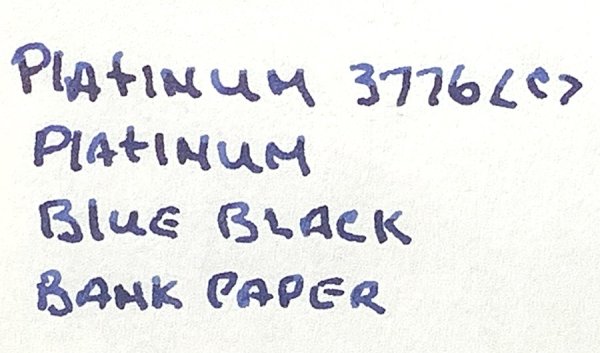 PLATINUM 3776 <C>
PLATINUM
BLUE BLACK
BANK PAPER